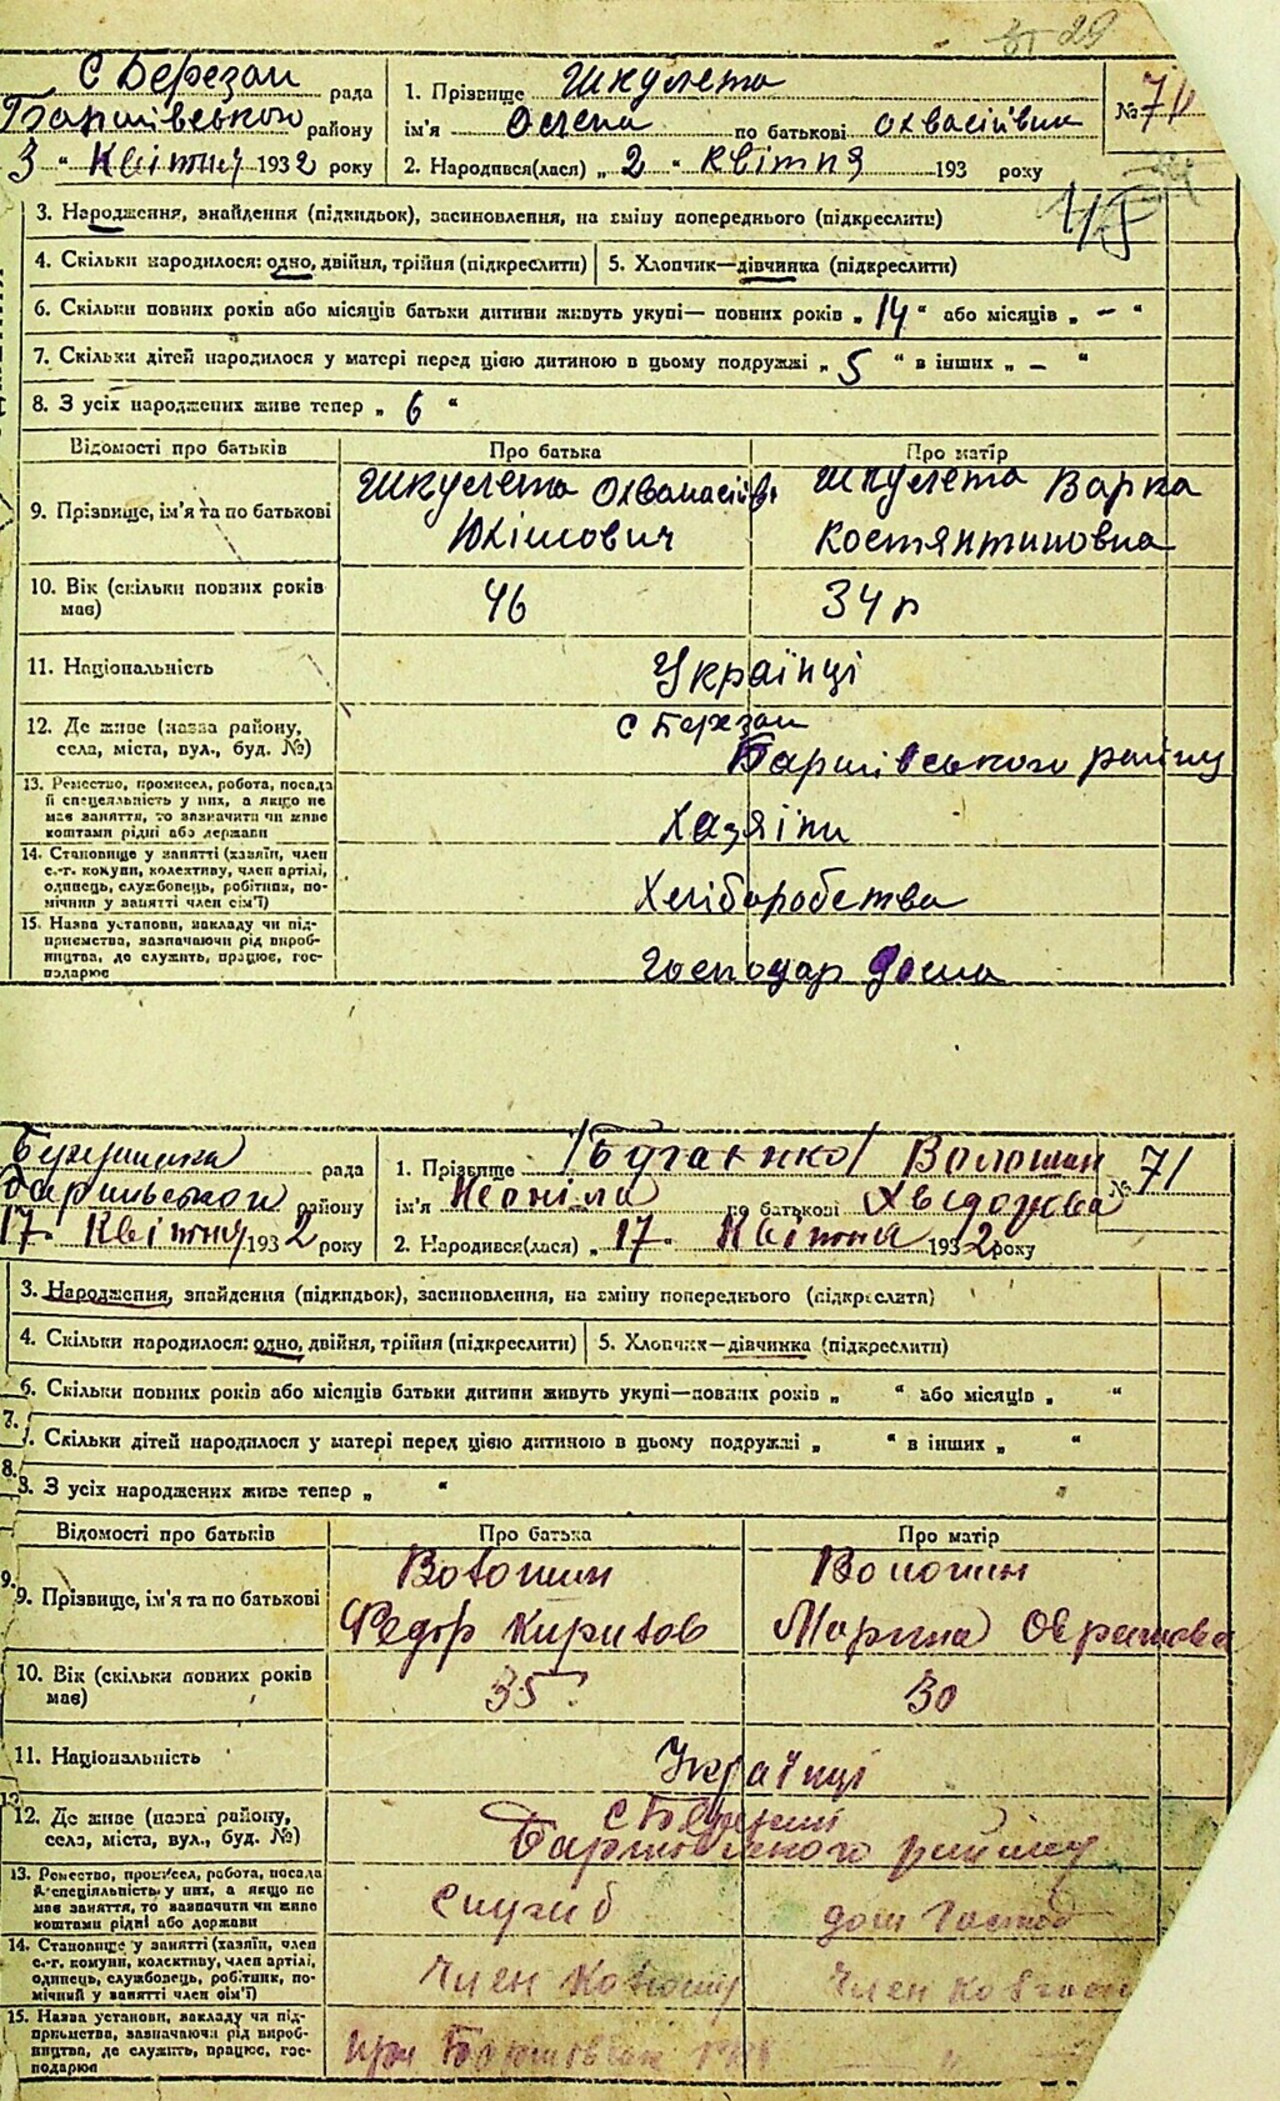 29
с Березан рада
Баришівського району
3 " Квітня 1932 року
1. Прізвище Шкулета
ім'я Олена по батькові Охвасіївни
2. Народився(лася) „ 2 " квітня 193 року
№ 70
3. Народження, знайдення (підкидьок), засиновлення, на зміну попереднього (підкреслити)
4. Скільки народилося: одно, двійня, трійня (підкреслити) 5. Хлопчик—дівчинка (підкреслити)
6. Скільки повних років або місяців батьки дитини живуть укупі— повних років „ 14 " або місяців „ – "
7. Скільки дітей народилося у матері перед цією дитиною в цьому подружжі „ 5 " в інших „ – "
8. З усіх народжених живе тепер „ 6 "
Відомості про батьків Про батька Про матір
9. Прізвище, ім'я та по батькові
Шкулета Охванасій
Юхимович
Шкулета Варка
Костянтиновна
10. Вік (скільки повних років має)
46 34 р
11. Національність
Українці
12. Де живе (назва району, села, міста, вул., буд. №)
с Березан
Баришівського району
13. Ремество, промисел, робота, посада й спеціяльність у них, а якщо не має заняття, то зазначити чи живе коштами рідні або держави
Хазяїни
14. Становище у занятті (хазяїн, член с.-г. комуни, колективу, член артілі, одинець, службовець, робітник, помічник у занятті член сім'ї)
Хліборобства
15. Назва установи, закладу чи підприємства, зазначаючи рід виробництва, де служить, працює, господарює
Господар дома
рада
району
17. Квітня 1932 року
1. Прізвище /Бугаенко/ Волошин
ім'я Неоніла по батькові Хведорова
2. Народився(лася) „ 17 " Квітня 1932 року
№ 71
3. Народження, знайдення (підкидьок), засиновлення, на зміну попереднього (підкреслити)
4. Скільки народилося: одно, двійня, трійня (підкреслити) 5. Хлопчик—дівчинка (підкреслити)
6. Скільки повних років або місяців батьки дитини живуть укупі—повних років „ " або місяців „ "
7. Скільки дітей народилося у матері перед цією дитиною в цьому подружжі „ " в інших „ "
8. З усіх народжених живе тепер „ "
Відомості про батьків Про батька Про матір
9. Прізвище, ім'я та по батькові
Волошин
Федор Кирилов
Волошин
Марина
10. Вік (скільки повних років має)
35 30
11. Національність
Українці
12. Де живе (назва району, села, міста, вул., буд. №)
с
району
13. Ремество, промисел, робота, посада й спеціяльність у них, а якщо не має заняття, то зазначити чи живе коштами рідні або держави
Служб дом Господ
14. Становище у занятті (хазяїн, член с.-г. комуни, колективу, член артілі, одинець, службовець, робітник, помічник у занятті член сім'ї)
Член Член
15. Назва установи, закладу чи підприємства, зазначаючи рід виробництва, де служить, працює, господарює
при